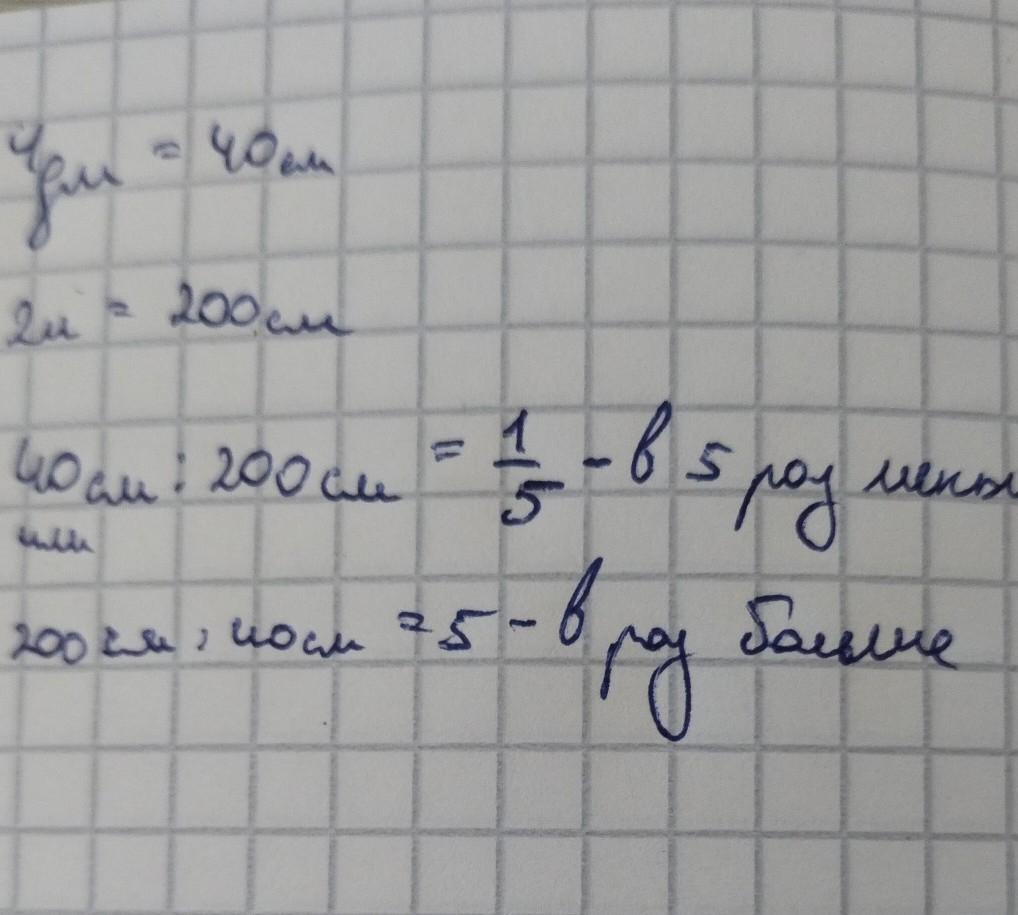 4дм = 40см
2м = 200см
40см : 200см = 1/5 - в 5 раз меньш
или
200см : 40см = 5 - в раз больше